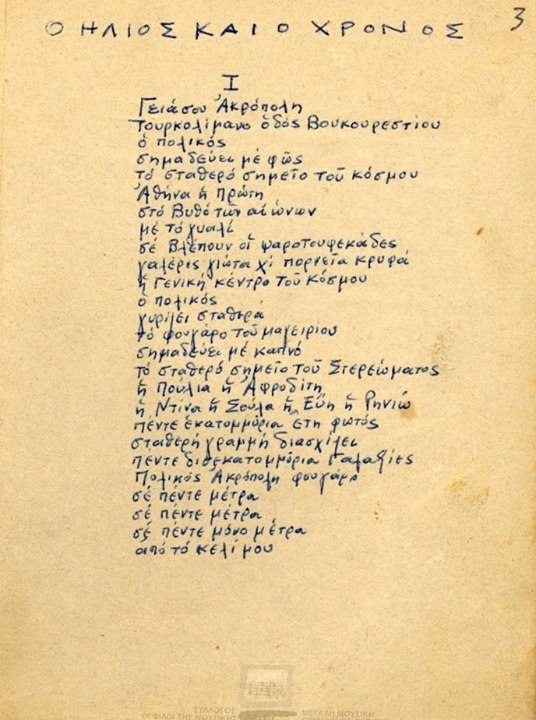 3
Ο ΗΛΙΟΣ ΚΑΙ Ο ΧΡΟΝΟΣ
I
Γειάσου Ἀκρόπολη
Τουρκολίμανο ὁδός Βουκουρεστίου
ὁ πολικός
σημαδεύει μέ φῶς
τό σταθερό σημεῖο τοῦ κόσμου
Ἀθήνα ἡ πρώτη
στό Βυθό τῶν αἰώνων
μέ τό γυαλί
σέ βλέπουν οἱ ψαροτουφεκάδες
γαλέρες γιώτα χί πορνεῖα κρυφά
ἡ Γενική κέντρο τοῦ κόσμου
ὁ πολικός
γυρίζει σταθερά
τό φουγάρο τοῦ μαγειρίου
σημαδεύει μέ καπνό
τό σταθερό σημεῖο τοῦ Στερεώματος
ἡ Πούλια ἡ Ἀφροδίτη
ἡ Ντίνα ἡ Σούλα ἡ Εὔη ἡ Ρηνιώ
πέντε ἑκατομμύρια ἔτη φωτός
σταθερή γραμμή διασχίζει
πέντε δισεκατομμύρια Γαλαξίες
Πολικός Ἀκρόπολη φουγάρο
σέ πέντε μέτρα
σέ πέντε μέτρα
σέ πέντε μόνο μέτρα
ἀπό τό κελί μου
ΣΥΛΛΟΓΟΣ
ΟΙ ΦΙΛΟΙ ΤΗΣ ΜΟΥΣΙΚΗΣ
ΜΕΓΑΛΗ ΜΟΥΣΙΚΗ